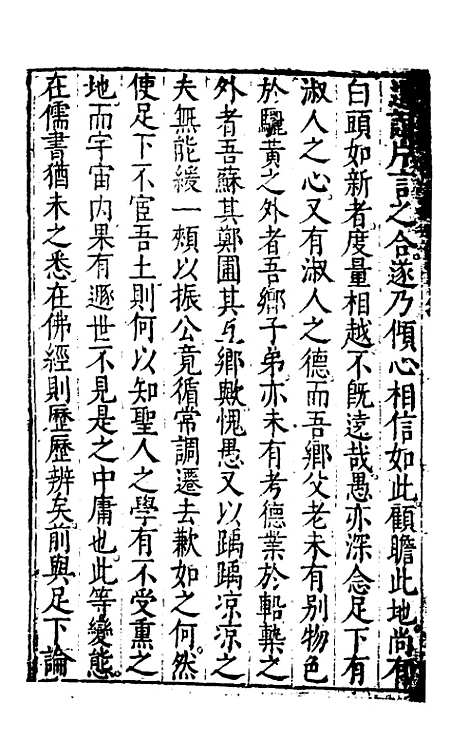 片言之合遂乃傾心相信如此顧瞻此地尚有
白頭如新者度量相越不旣遠哉愚亦深念足下有
淑人之心又有淑人之德而吾鄉父老未有别物色
於驪黃之外者吾鄉子弟亦未有考德業於軺藥之
外者吾蘇其鄭圃其互鄉歟愧愚又以踽踽凉凉之
夫無能緩一頰以振公竟循常調遷去歉如之何然
使足下不宦吾土則何以知聖人之學有不受熏之
地而宇宙內果有遯世不見是之中庸也此等變態
在儒書猶未之悉在佛經則歷歷辨矣前與足下論